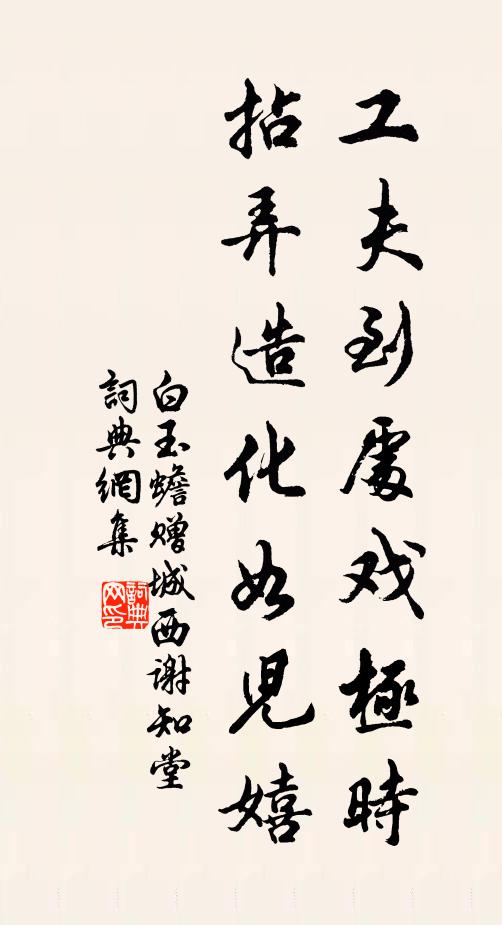 工夫到處戏極時
拈弄造化如児嬉
白玉蟾赠城西谢知堂
詞典網集
詞典網印